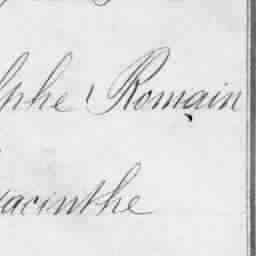 lphe Romain
yacinthe